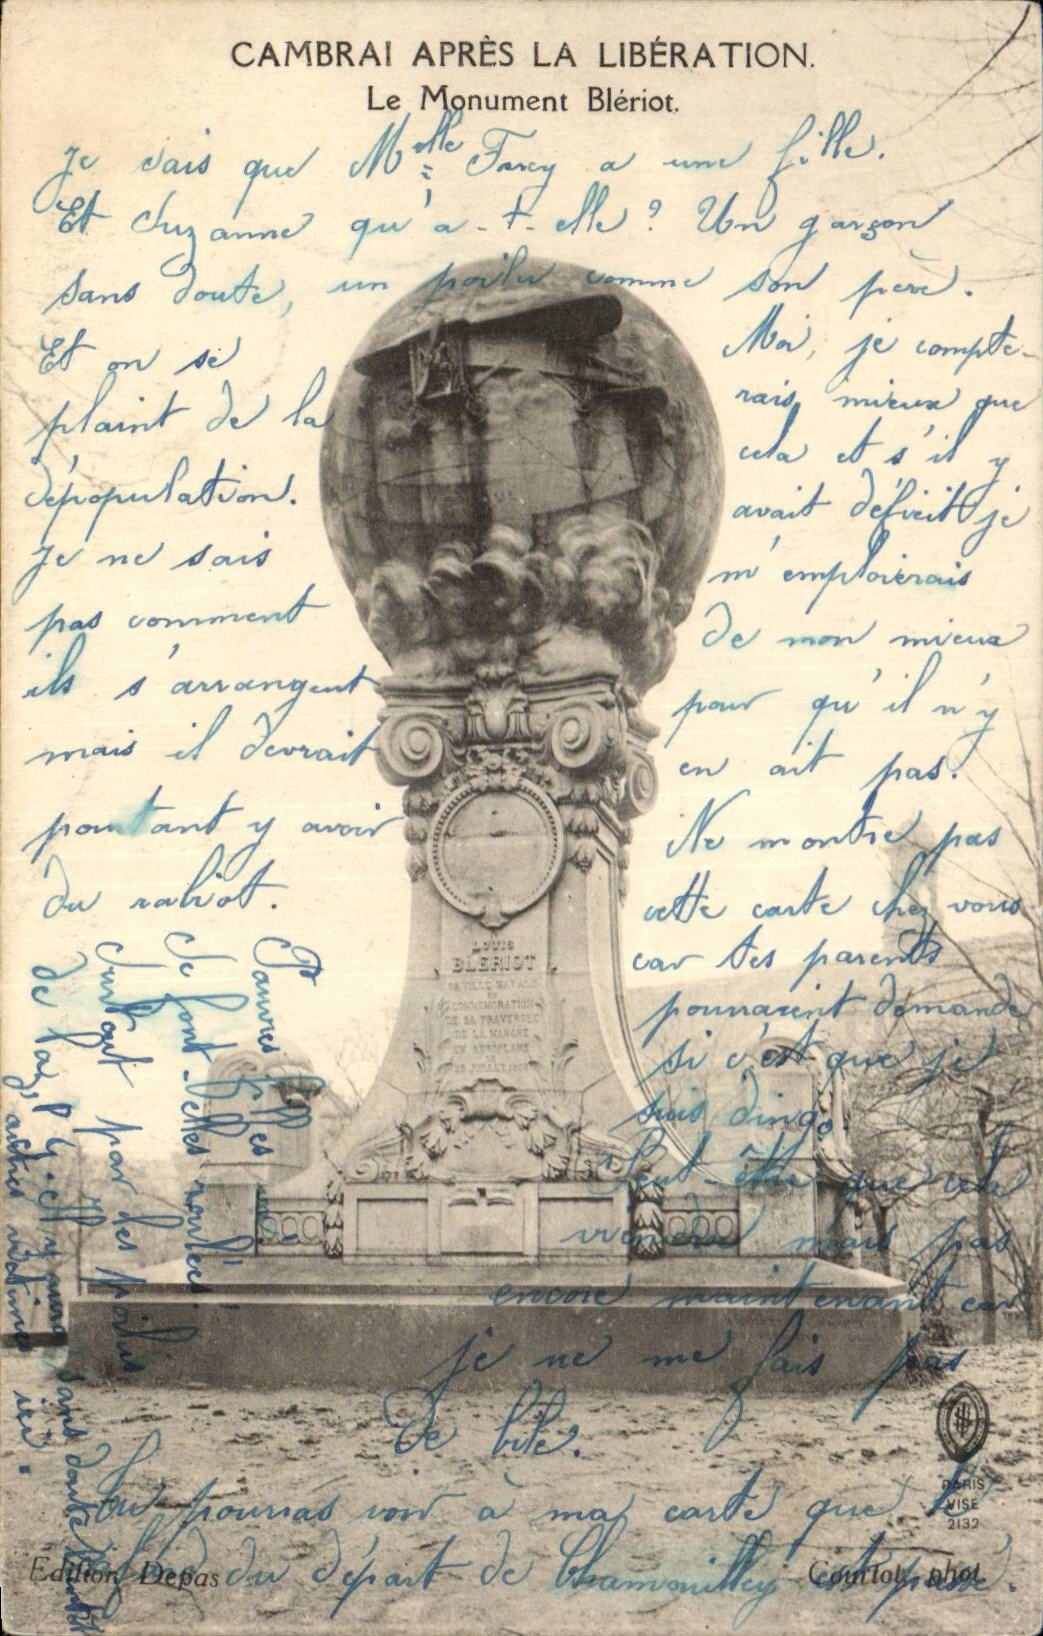 CAMBRAI APRÈS LA LIBÉRATION.
Le Monument Blériot.
Je sais que Melle Farcy a une fille.
Et Suzanne qu'a-t-elle? Un garçon
sans doute, un poilu comme son père.
Et on se
plaint de la
dépopulation.
Je ne sais
pas comment
ils s'arrangent
mais il devrait
pourtant y avoir
du rabiot.
Pauvres filles
Se font-elles rouler!
Surtout par les poilus
de la
autres victimes ici.
sans doute
Moi, je compte-
rais mieux que
cela et s'il y
avait déficit je
m'emploierais
de mon mieux
pour qu'il n'y
en ait pas.
Ne montre pas
cette carte chez vous
car tes parents
pourraient demande
si c'est que je
suis dingo.
Peut-être que cela
viendra mais pas
encore maintenant car
je ne me fais pas
de bile.
Tu pourras voir à ma carte que le
du départ de Chamouilley est passé.
LOUIS
BLERIOT
SA VILLE NATALE
EN
COMMEMORATION
DE SA TRAVERSEE
DE LA MANCHE
EN AEROPLANE
LE
25 JUILLET 1909
PARIS
VISE
2132
Edition Depas
Courtot, phot.